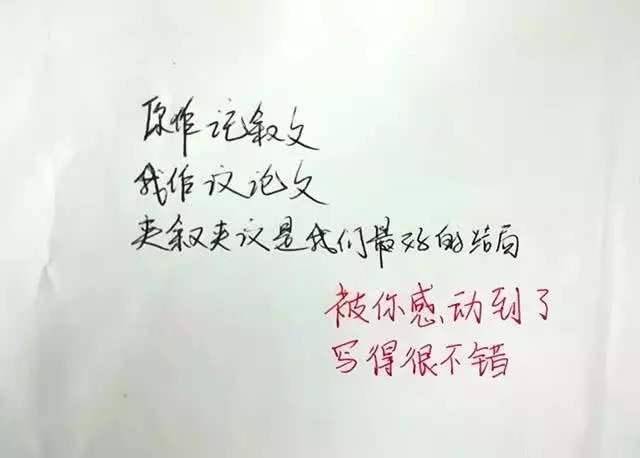 你作记叙文
我作议论文
夹叙夹议是我们最好的结局
被你感动到了
写得很不错